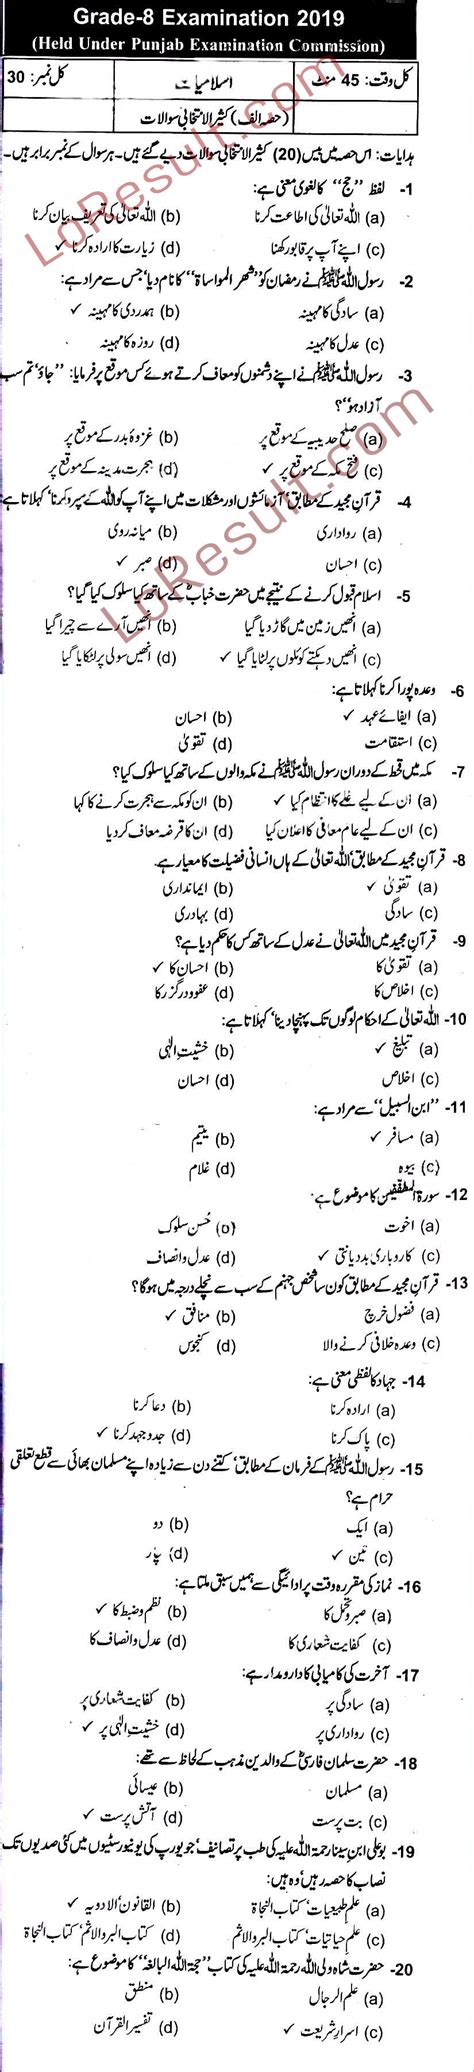 Grade-8 Examination 2019
(Held Under Punjab Examination Commission)
کل وقت: 45 منٹ اسلامیات کل نمبر: 30
(حصہ الف) کثیر الانتخابی سوالات
ہدایات: اس حصہ میں بیس (20) کثیر الانتخابی سوالات دیے گئے ہیں۔ ہر سوال کے نمبر برابر ہیں۔
1- لفظ ”حج“ کا لغوی معنی ہے:
(a) اللہ تعالیٰ کی اطاعت کرنا (b) اللہ تعالیٰ کی تعریف بیان کرنا
(c) اپنے آپ پر قابو رکھنا (d) زیارت کا ارادہ کرنا ✓
2- رسول اللہ ﷺ نے رمضان کو ”شھر المواساۃ“ کا نام دیا جس سے مراد ہے:
(a) سادگی کا مہینہ (b) ہمدردی کا مہینہ ✓
(c) عدل کا مہینہ (d) روزہ کا مہینہ
3- رسول اللہ ﷺ نے اپنے دشمنوں کو معاف کرتے ہوئے کس موقع پر فرمایا: ”جاؤ، تم سب
آزاد ہو“؟
(a) صلح حدیبیہ کے موقع پر (b) غزوۂ بدر کے موقع پر
(c) فتح مکہ کے موقع پر ✓ (d) ہجرت مدینہ کے موقع پر
4- قرآن مجید کے مطابق، آزمائشوں اور مشکلات میں اپنے آپ کو اللہ کے سپرد کرنا، کہلاتا ہے
(a) رواداری (b) میانہ روی
(c) احسان (d) صبر ✓
5- اسلام قبول کرنے کے نتیجے میں حضرت خبابؓ کے ساتھ کیا سلوک کیا گیا؟
(a) انھیں زمین میں گاڑ دیا گیا (b) انھیں آرے سے چیرا گیا
(c) انھیں دہکتے کوئلوں پر لٹایا گیا ✓ (d) انھیں سولی پر لٹکایا گیا
6- وعدہ پورا کرنا کہلاتا ہے:
(a) ایفائے عہد ✓ (b) احسان
(c) استقامت (d) تقویٰ
7- مکہ میں قحط کے دوران رسول اللہ ﷺ نے مکہ والوں کے ساتھ کیا سلوک کیا؟
(a) ان کے لیے غلے کا انتظام کیا ✓ (b) ان کو مکہ سے ہجرت کرنے کا کہا
(c) ان کے لیے عام معافی کا اعلان کیا (d) ان کا قرضہ معاف کر دیا
8- قرآن مجید کے مطابق، اللہ تعالیٰ کے ہاں انسانی فضیلت کا معیار ہے۔
(a) تقویٰ ✓ (b) ایمانداری
(c) سادگی (d) بہادری
9- قرآن مجید میں اللہ تعالیٰ نے عدل کے ساتھ کس کا حکم دیا ہے؟
(a) تقویٰ کا (b) احسان کا ✓
(c) اخلاص کا (d) عفو و درگزر کا
10- اللہ تعالیٰ کے احکام لوگوں تک پہنچا دینا، کہلاتا ہے:
(a) تبلیغ ✓ (b) خشیتِ الٰہی
(c) اخلاص (d) احسان
11- ”ابن السبیل“ سے مراد ہے:
(a) مسافر ✓ (b) یتیم
(c) بیوہ (d) غلام
12- سورۃ المطففین کا موضوع ہے:
(a) اخوت (b) حُسن سلوک
(c) کاروباری بددیانتی ✓ (d) عدل و انصاف
13- قرآن مجید کے مطابق کون سا شخص جہنم کے سب سے نچلے درجہ میں ہوگا؟
(a) فضول خرچ (b) منافق ✓
(c) وعدہ خلافی کرنے والا (d) کنجوس
14- جہاد کا لفظی معنی ہے:
(a) ارادہ کرنا (b) دعا کرنا
(c) پاک کرنا (d) جدوجہد کرنا ✓
15- رسول اللہ ﷺ کے فرمان کے مطابق، کتنے دن سے زیادہ اپنے مسلمان بھائی سے قطع تعلقی
حرام ہے؟
(a) ایک (b) دو
(c) تین ✓ (d) چار
16- نماز کی مقررہ وقت پر ادائیگی سے ہمیں سبق ملتا ہے:
(a) صبر و تحمل کا (b) نظم و ضبط کا ✓
(c) کفایت شعاری کا (d) عدل و انصاف کا
17- آخرت کی کامیابی کا دارومدار ہے:
(a) سادگی پر (b) کفایت شعاری پر
(c) رواداری پر (d) خشیتِ الٰہی پر ✓
18- حضرت سلمان فارسیؓ کے والدین مذہب کے لحاظ سے تھے:
(a) مسلمان (b) عیسائی
(c) بت پرست (d) آتش پرست ✓
19- بو علی ابن سینا رحمۃ اللہ علیہ کی طب پر تصانیف، جو یورپ کی یونیورسٹیوں میں کئی صدیوں تک
نصاب کا حصہ رہیں، وہ ہیں:
(a) علم طبیعیات، کتاب النجاۃ (b) القانون، الادویہ ✓
(c) علم حیاتیات، کتاب البر والاثم (d) کتاب البر والاثم، کتاب النجاۃ
20- حضرت شاہ ولی اللہ رحمۃ اللہ علیہ کی کتاب ”حجۃ اللہ البالغہ“ کا موضوع ہے:
(a) علم الرجال (b) منطق
(c) اسرارِ شریعت ✓ (d) تفسیر القرآن
LoResult.com
LoResult.com